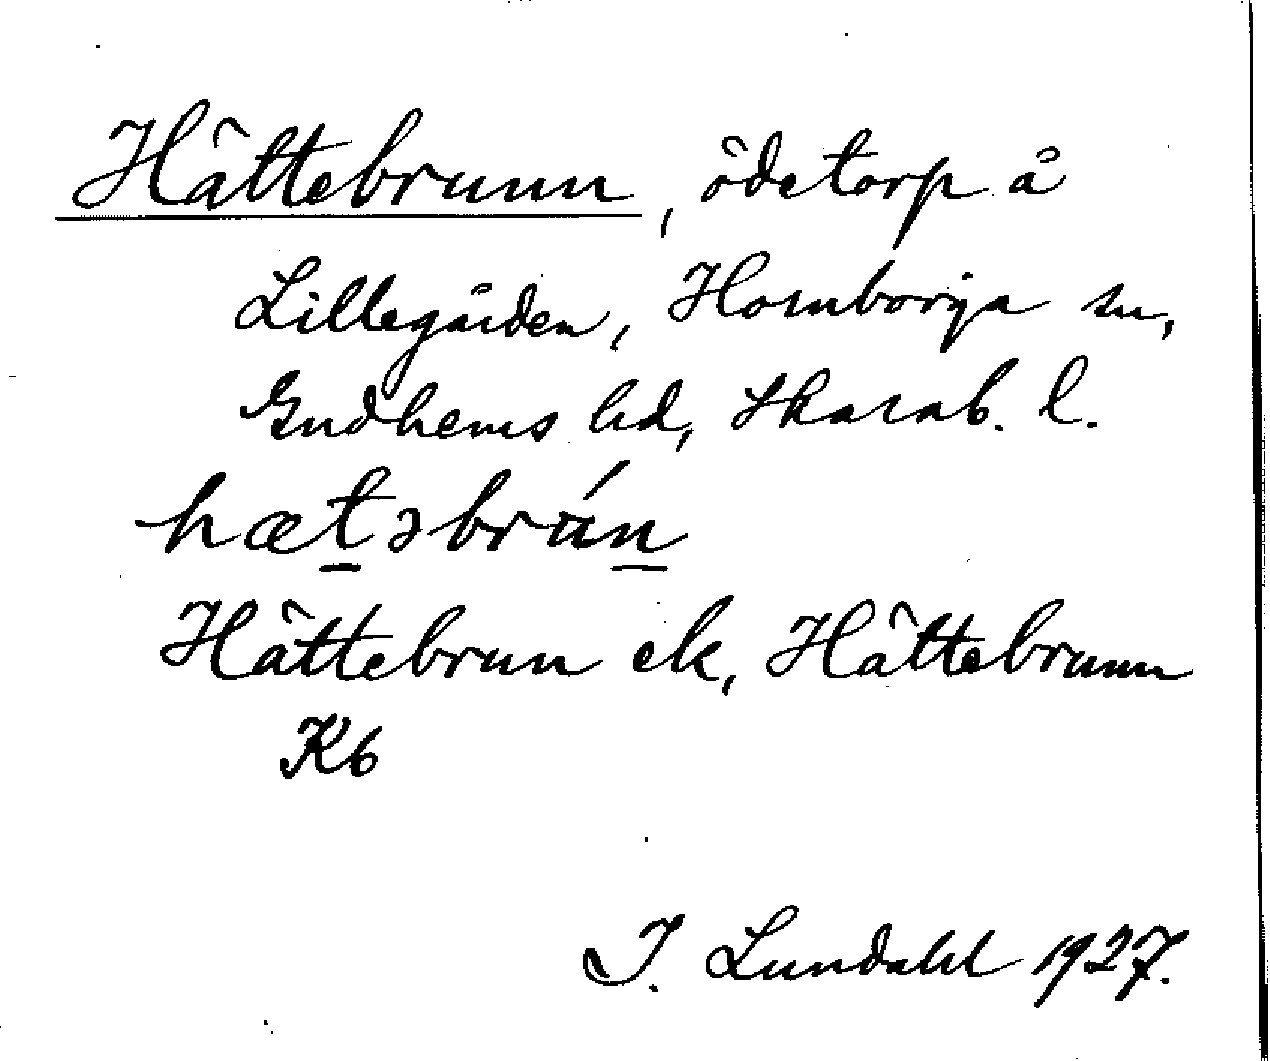 Hättebrunn, ödetorp å
Lillegården, Hornborga sn,
Gudhems hd, Skarab. l.
hætəbrún
Hättebrun ek, Hättebrunn
Kb
I. Lundahl 1927.